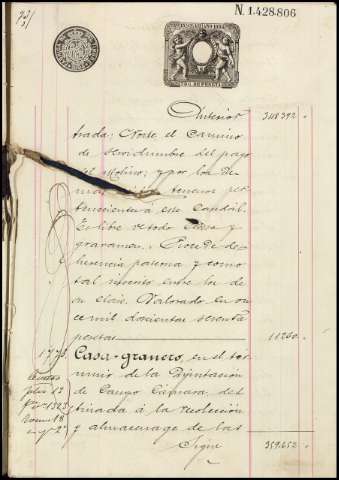 N. 1.428.806
Anterior 348392,
trada; Norte el camino
de servidumbre del pago
el Molino; y por los De
mas tenenos per
tenecientes á este caudal.
Es libre de toda y
gravamen. Procede de
herencia paterna y como
tal inventº entre los de
su clase. Valorado en on
ce mil doscientos sesenta
pesetas 11260.
177ª Casa-granero, en el tér
mino de la Diputacion
de Campo Cámara, des
tinada á la recoleccion
y almacenage de las
Sigue 359.652.